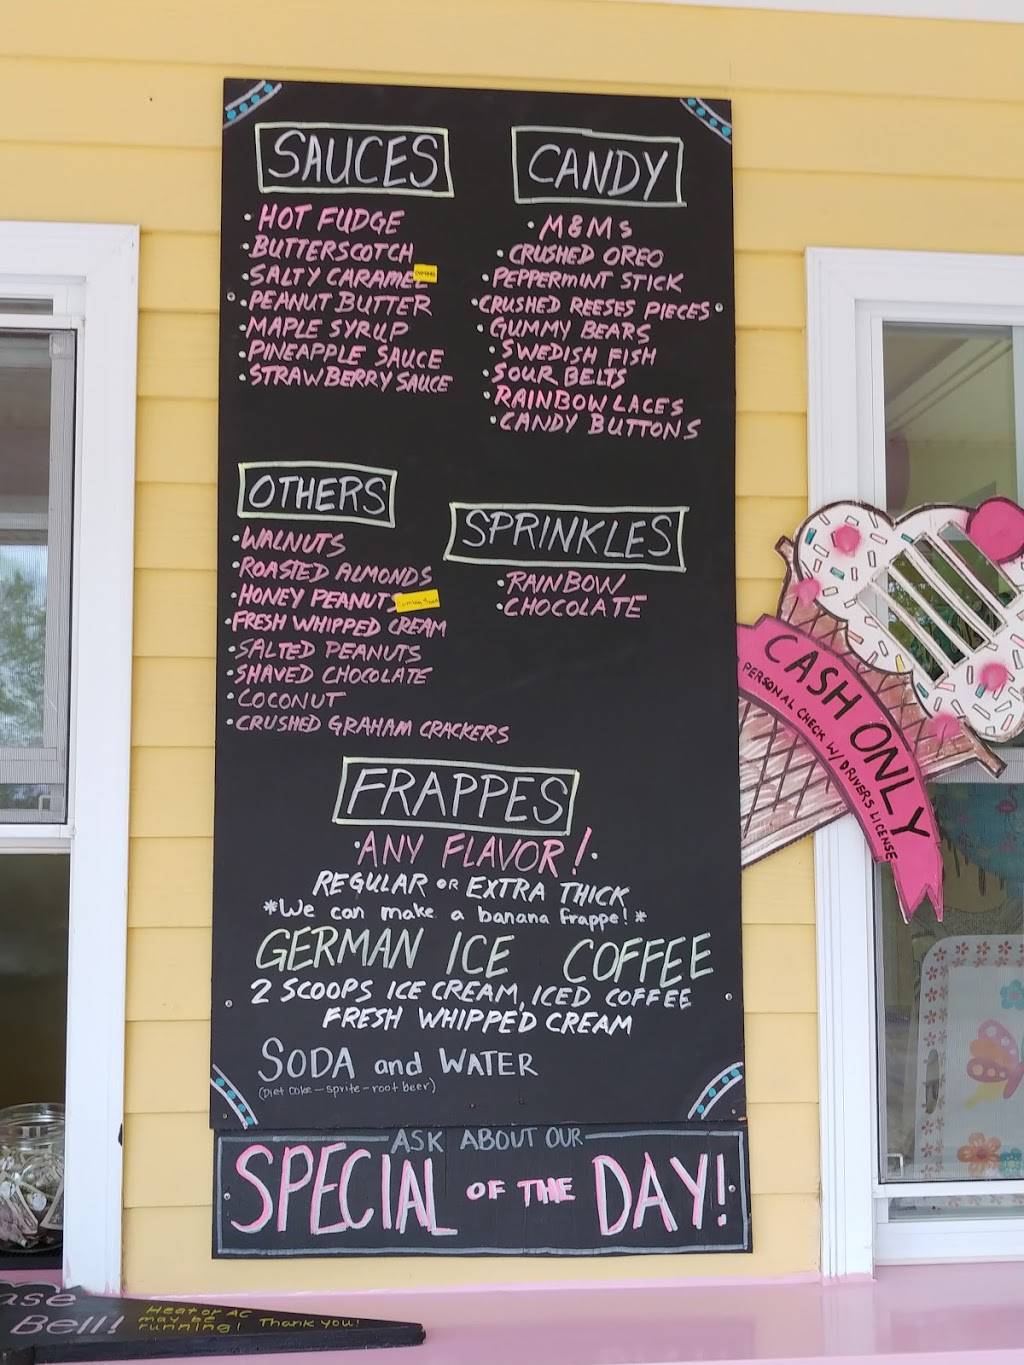 SAUCES
• HOT FUDGE
• BUTTERSCOTCH
• SALTY CARAMEL
• PEANUT BUTTER
• MAPLE SYRUP
• PINEAPPLE SAUCE
• STRAWBERRY SAUCE
CANDY
• M&Ms
• CRUSHED OREO
• PEPPERMINT STICK
• CRUSHED REESES PIECES
• GUMMY BEARS
• SWEDISH FISH
• SOUR BELTS
• RAINBOW LACES
• CANDY BUTTONS
OTHERS
• WALNUTS
• ROASTED ALMONDS
• HONEY PEANUTS Coming Soon
• FRESH WHIPPED CREAM
• SALTED PEANUTS
• SHAVED CHOCOLATE
• COCONUT
• CRUSHED GRAHAM CRACKERS
SPRINKLES
• RAINBOW
• CHOCOLATE
FRAPPES
• ANY FLAVOR! •
REGULAR OR EXTRA THICK
*We can make a banana frappe!*
GERMAN ICE COFFEE
2 SCOOPS ICE CREAM, ICED COFFEE
FRESH WHIPPED CREAM
SODA and WATER
(Diet Coke - sprite - root beer)
ASK ABOUT OUR
SPECIAL OF THE DAY!
CASH ONLY
PERSONAL CHECK W/ DRIVERS LICENSE
Bell!
Heat or AC
may be
running! Thank you!